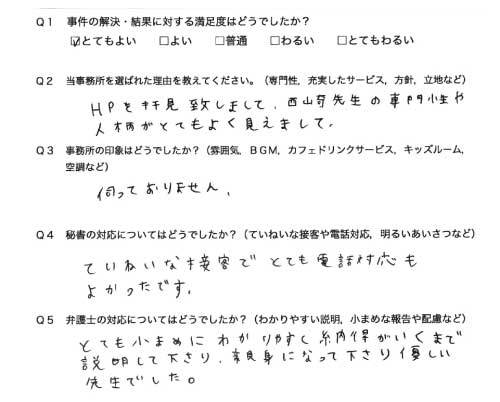 Q1 事件の解決・結果に対する満足度はどうでしたか?
☑とてもよい □よい □普通 □わるい □とてもわるい
Q2 当事務所を選ばれた理由を教えてください。(専門性，充実したサービス，方針，立地など)
HPを拝見致しまして、西山奇先生の専門性や
人柄がとてもよく見えまして、
Q3 事務所の印象はどうでしたか?(雰囲気，BGM，カフェドリンクサービス，キッズルーム，
空調など)
伺っておりません、
Q4 秘書の対応についてはどうでしたか?(ていねいな接客や電話対応，明るいあいさつなど)
ていねいな接客でとても電話対応も
よかったです。
Q5 弁護士の対応についてはどうでしたか?(わかりやすい説明，小まめな報告や配慮など)
とても小まめにわかりやすく納得がいくまで
説明して下さり、親身になって下さり優しい
先生でした。